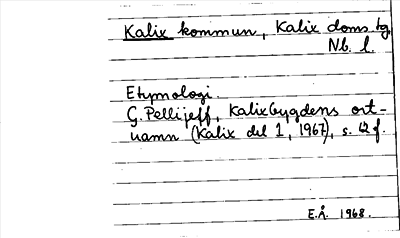 Kalix kommun, Kalix doms. tg
Nb. l.
Etymologi.
G. Pellijeff, Kalixbygdens ort-
namn (Kalix del 1, 1967), s. 12 f.
E.Å. 1968.